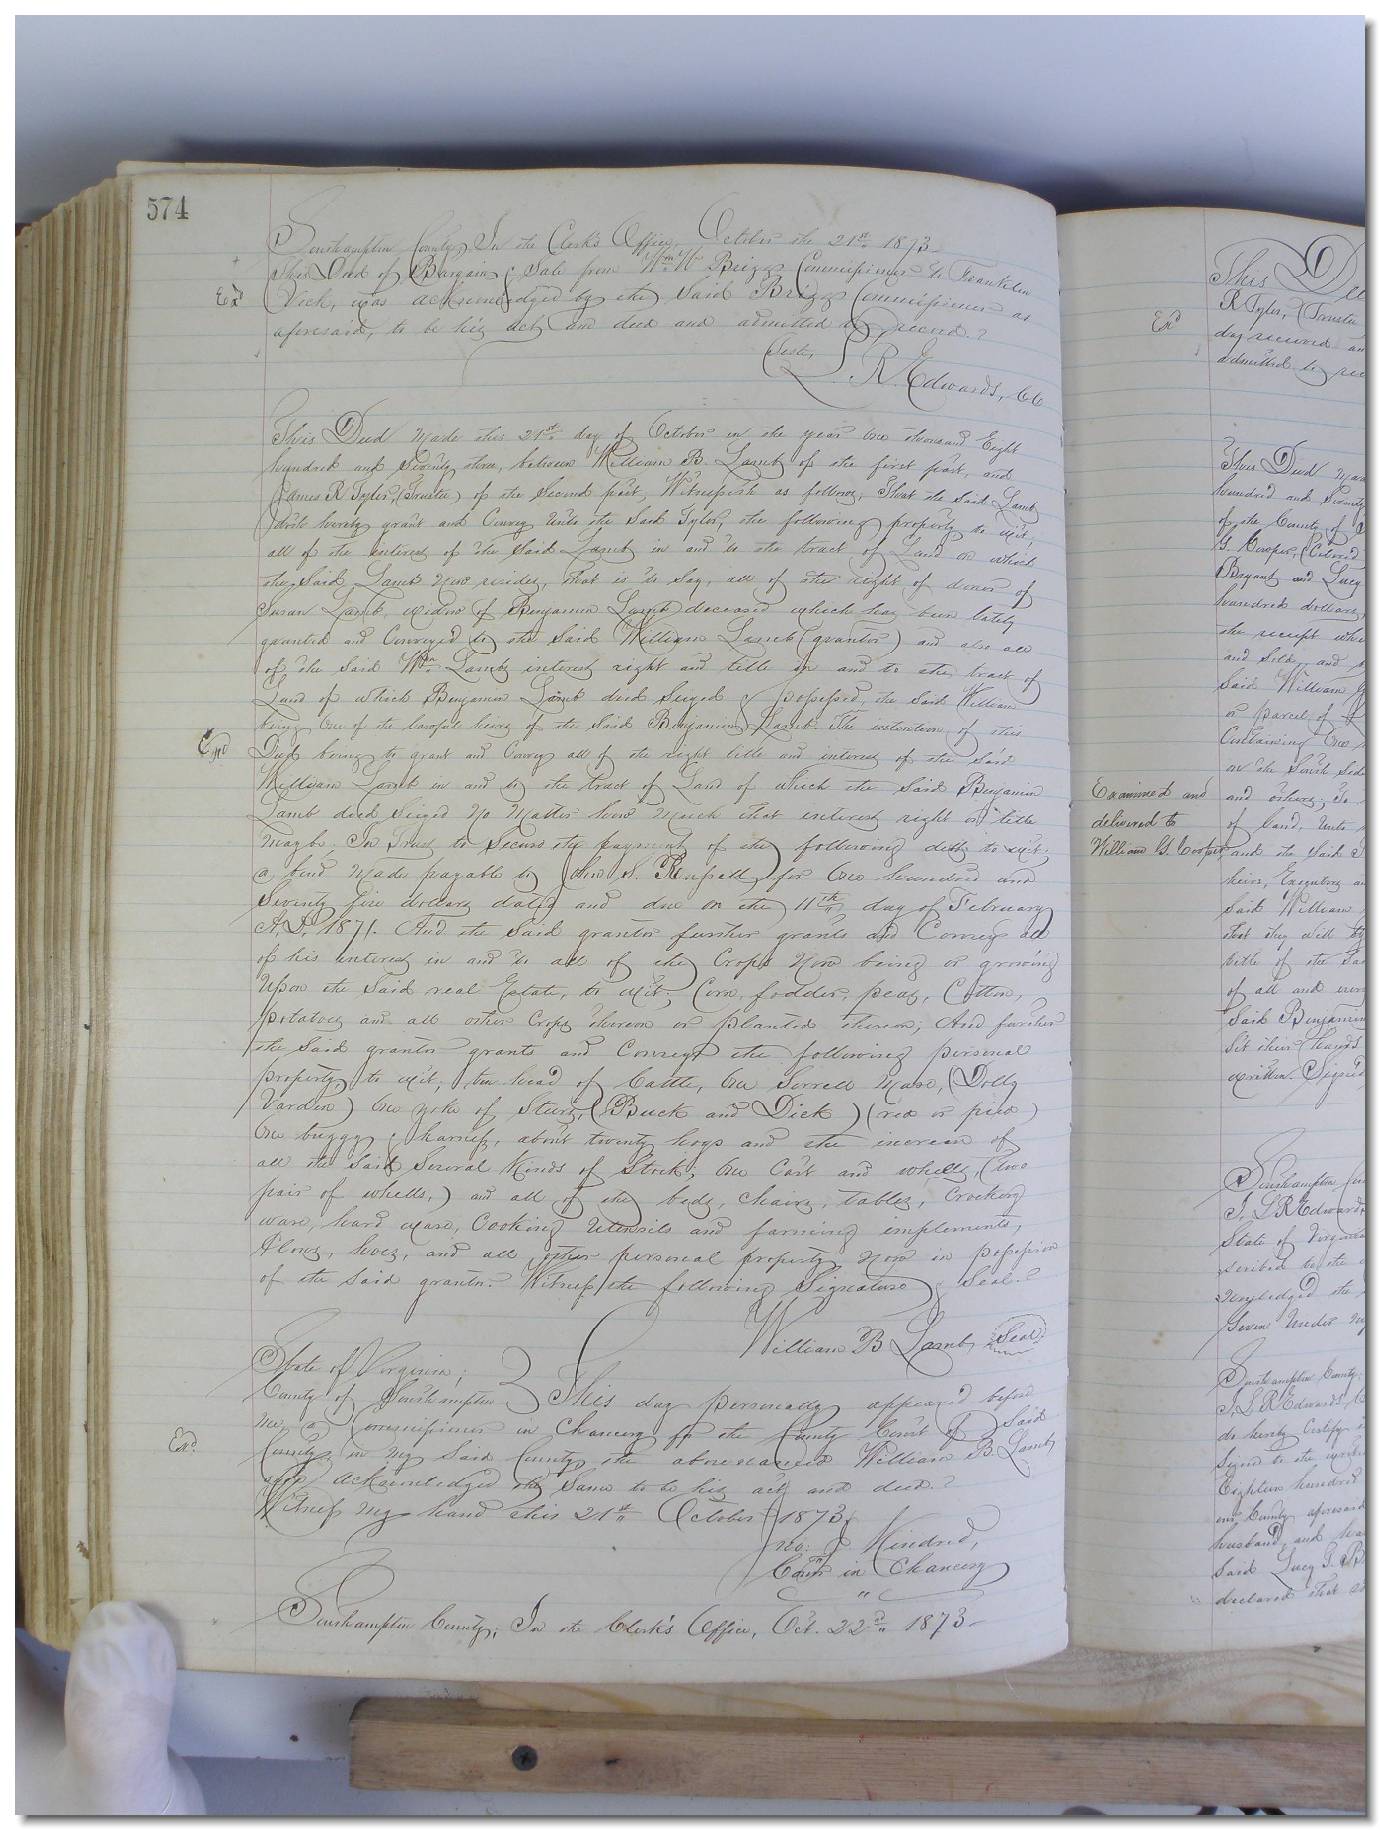 574
Southampton County, In the Clerk's Office, October the 21st 1873
This Deed of Bargain & Sale from Wm W Briggs Commissioner to Franklin
Exd
Vick, was acknowledged by the said Briggs Commissioner as
aforesaid, to be his act and deed and admitted to record.
Teste,
L. R. Edwards, CC
This Deed made this 21st day of October in the year One thousand Eight
hundred and Seventy three, between William B. Lamb of the first part, and
James R Tyler, (Trustee) of the Second part, Witnesseth as follows, That the said Lamb
doth hereby grant and Convey Unto the said Tyler, the following property to wit,
all of the interest of the Said Lamb in and to the tract of Land on which
the Said Lamb now resides, that is to Say, all of the right of dower of
Susan Lamb, widow of Benjamin Lamb deceased which has been lately
granted and Conveyed to the said William Lamb (grantor) and also all
of the said Wm Lambs interest right and title in and to the tract of
Land of which Benjamin Lamb died Seized & possessed, the said William
being One of the lawful heirs of the said Benjamin Lamb. The intention of this
Exd
Deed being to grant and Convey all of the right title and interest of the Said
William Lamb in and to the tract of Land of which the Said Benjamin
Lamb died Seized No Matter how Much that interest right or title
maybe. In Trust to Secure the payment of the following debts to wit;
a bond made payable to John S. Russell for One hundred and
Seventy five dollars dated and due on the 11th day of February
A.D. 1871. And the said grantor further grants and Conveys all
of his interest in and to all of the Crops Now being or growing
Upon the Said real Estate, to wit, Corn, fodder, peas, Cotton,
potatoes and all other Crops thereon or planted thereon, And further
the Said grantor grants and Conveys the following personal
property to wit, ten head of Cattle, One Sorrell Mare, (Dolly
Varden) One yoke of Steers, (Buck and Dick) (red or pied)
One buggy & harness, about twenty hogs and the increase of
all the Said Several Kinds of Stock, One Cart and wheels, (two
pair of wheels,) and all of the beds, chairs, tables, Crockery
ware, hard ware, Cooking Utensils and farming implements,
Plows, hoes, and all other personal property Now in possession
of the said grantor. Witness the following Signature & Seal.
William B Lamb, Seal
State of Virginia;
County of Southampton } This day personally appeared before
me, a Commissioner in Chancery for the County Court of Said
Exd.
County, in my Said County, the abovenamed William B. Lamb
and acknowledged the Same to be his act and deed.
Witness my hand this 21st October 1873,
Jno. J. Kindred,
Comr in Chancery
Southampton County, In the Clerk's Office, Oct. 22d 1873
This De
R Tyler, (Trustee
Exd
day received an
admitted to rec
This Deed mad
hundred and Seventy
of the County of
G. Cowper, (Colored
Bryant and Lucy
hundred dollars,
the receipt whe
and Sold, and
Said William
or parcel of
Containing One
on the South Side
Examined and
delivered to
William G. Cowper
and others; To
of land, Unto
and the Said
heirs, Executors an
Said William
that they will
title of the sa
of all and ever
Said Benjamin
Set their hands
written. Signed
Southampton
I, L R Edwards,
State of Virginia
scribed to the
Given Under my
Southampton County
I, L R Edwards C
do hereby Certify
Signed to the
Eighteen hundred
our County aforesaid
husband, and ha
Said Lucy
declared that